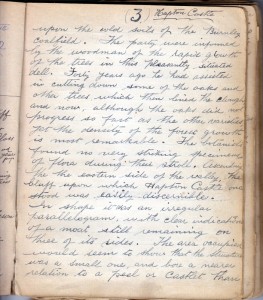 3) Hapton Castle
upon the cold soils of the Burnley
coalfield. The party were informed
by the woodman of the rapid growth
of the trees in this pleasantly situated
dell. Forty years ago he had assisted
in cutting down some of the oaks and
other trees which then lined the clough
and now, although the oaks do not
progress so fast as the other varieties
yet the density of the forest growth
is most remarkable. The botanists
found no very striking specimens
of flora during their stroll. Climbing
the eastern side of the valley, the
bluff upon which Hapton Castle once
stood was easily discernible.
In shape it was an irregular
parallelogram, with clear indications
of a moat still remaining on
three of its sides. The area occupied
would seem to prove that the building
was a small one, and bore a nearer
relation to a peel or Castlet than